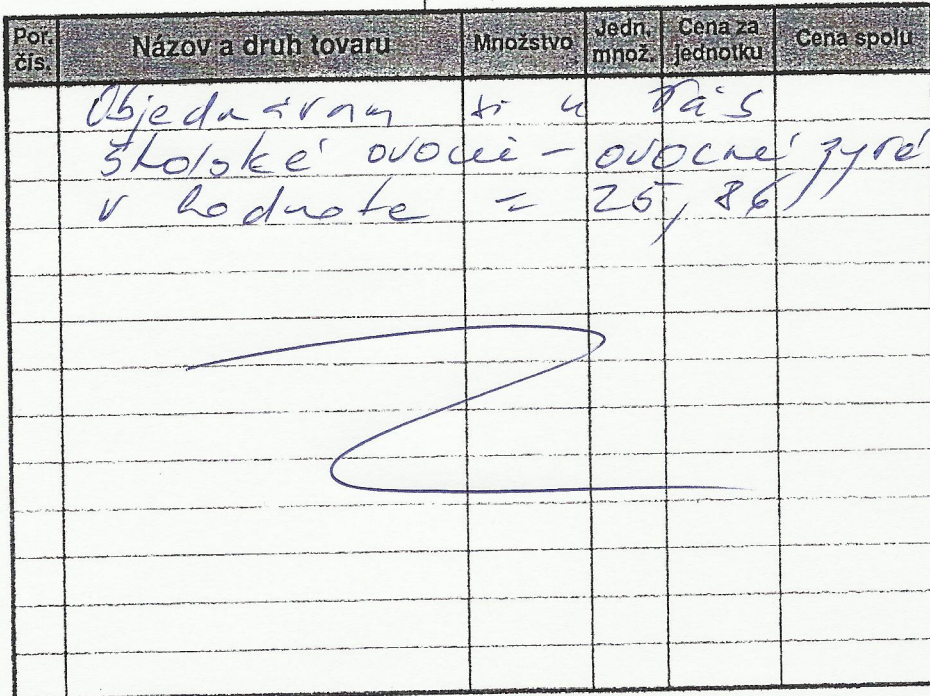 Por. čís. Názov a druh tovaru Množstvo Jedn. množ. Cena za jednotku Cena spolu
Objednávam si u Vás
školské ovocie - ovocné pyré
v hodnote = 25,86